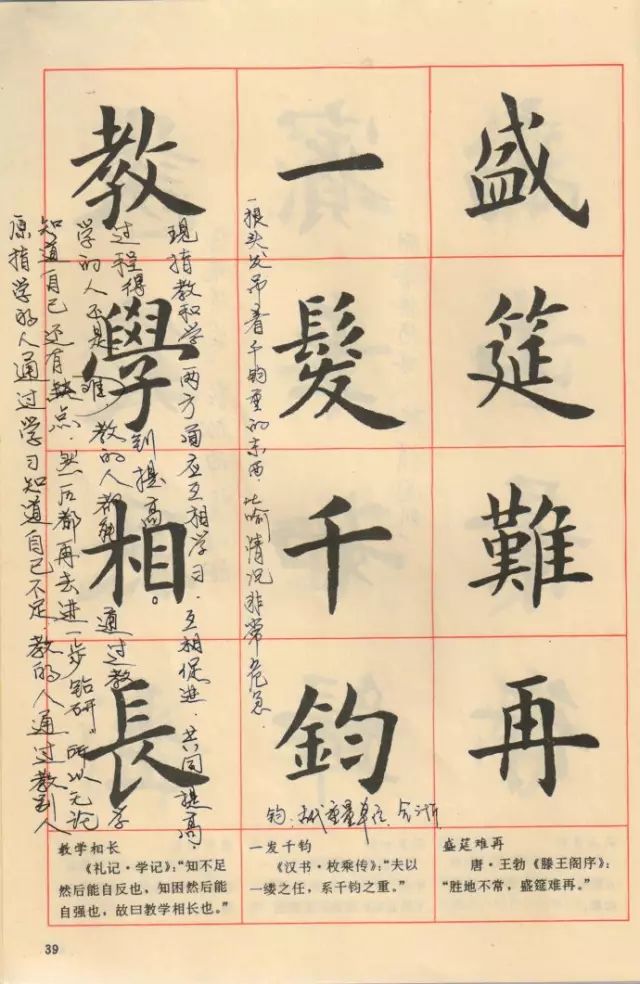 盛筵難再
一髮千鈞
教學相長
一根头发吊着千钧重的东西，比喻情况非常危急．
钧：古代重量单位，合
原指学的人通过学习知道自己不足，教的人通过教别人
知道自己还有缺点．然后都再去进一步钻研。所以无论
学的人还是教的人都能通过教学
过程得到提高。
现指教和学两方面应互相学习．互相促进．共同提高．
盛筵难再
唐·王勃《滕王阁序》：
“胜地不常，盛筵难再。”
一发千钧
《汉书·枚乘传》：“夫以
一缕之任，系千钧之重。”
教学相长
《礼记·学记》：“知不足
然后能自反也，知困然后能
自强也，故曰教学相长也。”
39